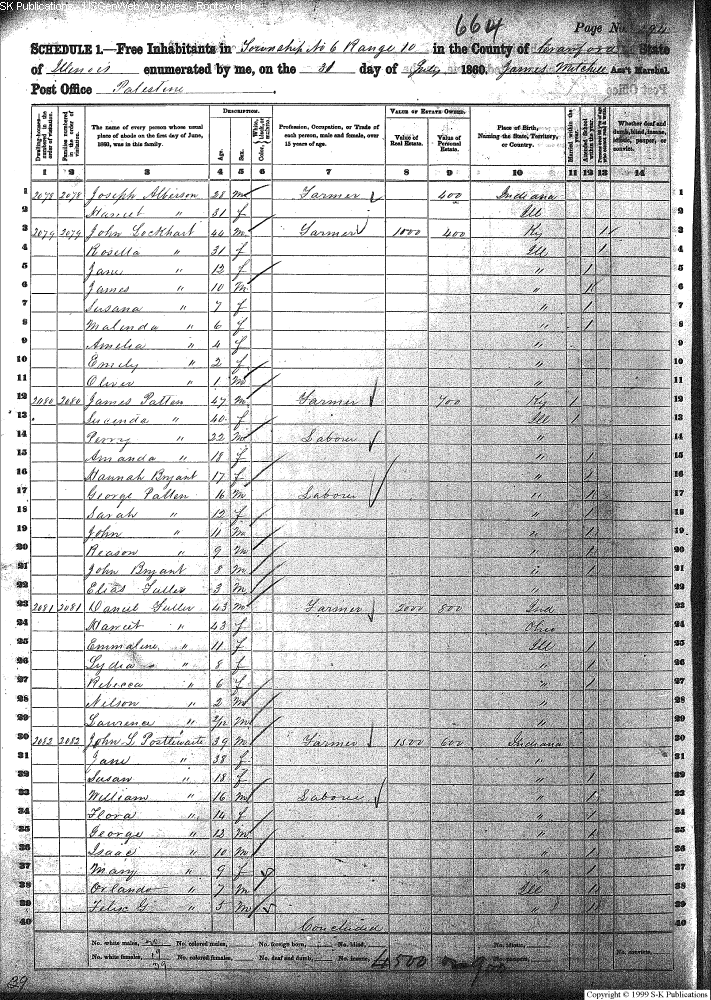 SK Publications - USGenWeb Archives - Rootsweb
664
Page No.
SCHEDULE 1.—Free Inhabitants in Township No 6 Range 10 in the County of Crawford State
of Illinois enumerated by me, on the 31 day of July 1860. James Mitchell Ass't Marshal.
Post Office Palestine
Dwelling-houses— numbered in the order of visitation.
Families numbered in the order of visitation.
The name of every person whose usual place of abode on the first day of June, 1860, was in this family.
DESCRIPTION.
Age.
Sex.
Color, White, black, or mulatto.
Profession, Occupation, or Trade of each person, male and female, over 15 years of age.
VALUE OF ESTATE OWNED.
Value of Real Estate.
Value of Personal Estate.
Place of Birth, Naming the State, Territory, or Country.
Married within the year.
Attended School within the year.
Whether deaf and dumb, blind, insane, idiotic, pauper, or convict.
1 2 3 4 5 6 7 8 9 10 11 12 13 14
1 2078 2078 Joseph Alberson 28 m Farmer 400 Indiana 1
2 Harriet " 31 f Ill 2
3 2079 2079 John Lockhart 44 m Farmer 1000 400 Ky 1 3
4 Rosella " 31 f Ill 1 4
5 Jane " 12 f " 1 5
6 James " 10 m " 1 6
7 Susana " 7 f " 1 7
8 Malinda " 6 f " 1 8
9 Amelia " 4 f " 9
10 Emily " 2 f " 10
11 Oliver " 1 m " 11
12 2080 2080 James Patten 47 m Farmer 700 Ky 1 12
13 Lucinda " 40 f Ill 1 13
14 Perry " 22 m Laborer " 14
15 Amanda " 18 f " 1 15
16 Hannah Bryant 17 f " 1 16
17 George Patten 16 m Laborer " 1 17
18 Sarah " 12 f " 1 18
19 John " 11 m " 1 19
20 Reason " 9 m " 1 20
21 John Bryant 8 m " 1 21
22 Elias Fuller 3 m " 22
23 2081 2081 Daniel Fuller 43 m Farmer 2000 800 Ind 23
24 Harriet " 43 f Ohio 24
25 Emmaline " 11 f Ill 1 25
26 Lydia " 8 f " 1 26
27 Rebecca " 6 f " 1 27
28 Nelson " 2 m " 28
29 Laurence " 2/12 m " 29
30 2082 2082 John L Postlewaite 39 m Farmer 1500 600 Indiana 30
31 Jane " 38 f " 31
32 Susan " 18 f " 1 32
33 William " 16 m Laborer " 1 33
34 Flora " 14 f " 1 34
35 George " 12 m " 1 35
36 Isaac " 10 m " 1 36
37 Mary " 9 f " 1 37
38 Orlando " 7 m Ill 1 38
39 Felix G " 5 m " 1 39
40 Concluded 40
No. white males, 20 No. colored males, No. foreign born, No. blind, No. idiotic,
No. white females, 19 No. colored females, No. deaf and dumb, No. insane, 4500 No. paupers, No. convicts,
39
Copyright © 1999 S-K Publications